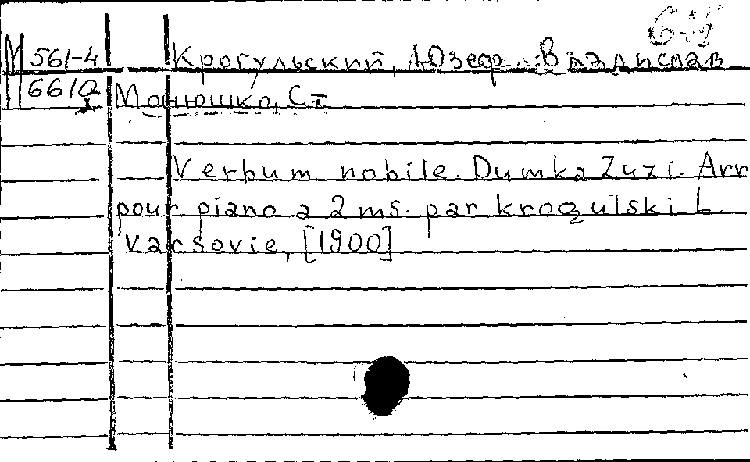 М 561-4 Крогульский, Юзеф Владислав
661 Монюшко, Ст.
Verbum nobile. Dumka Zuzi. Arr
pour piano a 2 ms. par Krogulski L
Varsovie, [1900]